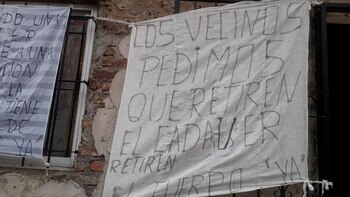 NDO UNA
E A UNA
ION
LA
TIENE
DE
YA
LOS VECINOS
PEDIMOS
QUE RETIREN
EL CADAVER
RETIREN
EL CUERPO "YA"